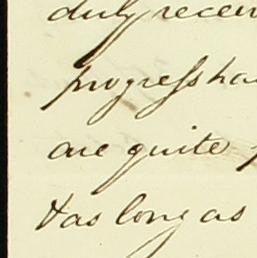 duly receiv
progress ha
are quite
& as long as